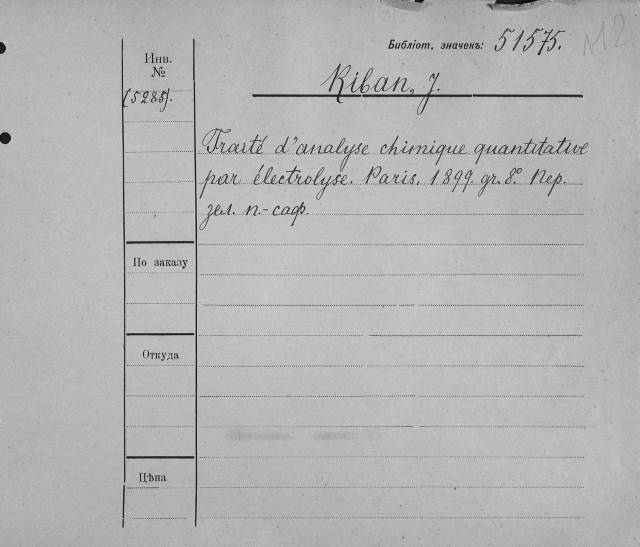 Библіот. значекъ: 51575.
M2
Инв.
№
(5285).
Riban, J.
Traité d'analyse chimique quantitative
par électrolyse. Paris. 1899. gr. 8º Пер.
зел. п.-саф.
По заказу
Откуда
Цѣна